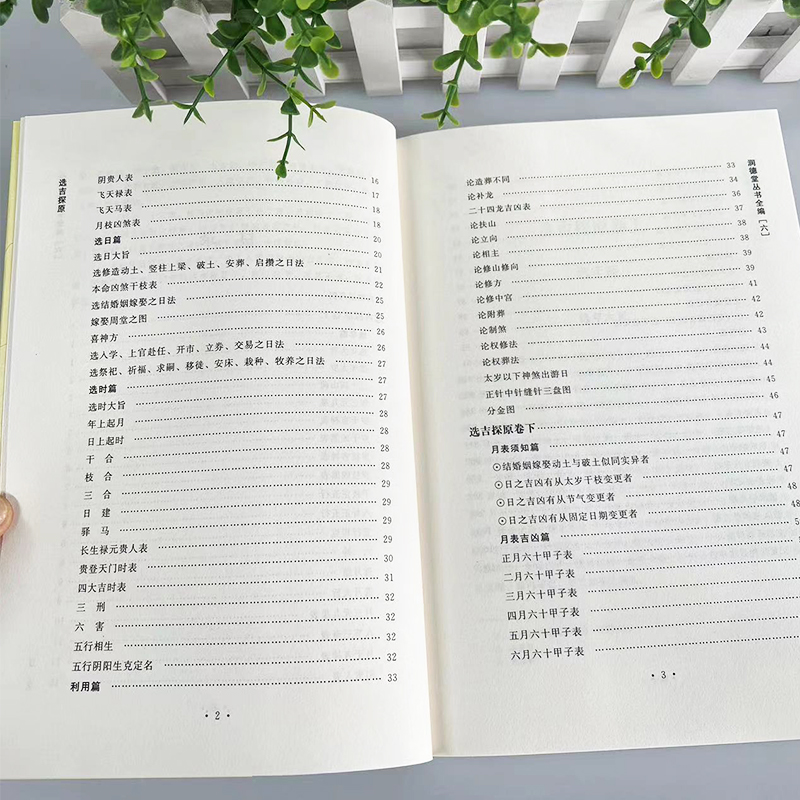 选吉探原
阴贵人表 16
飞天禄表 17
飞天马表 18
月枝凶煞表 18
选日篇 20
选日大旨 20
选修造动土、竖柱上梁、破土、安葬、启攒之日法 21
本命凶煞干枝表 22
选结婚姻嫁娶之日法 25
嫁娶周堂之图 25
喜神方 26
选入学、上官赴任、开市、立券、交易之日法 26
选祭祀、祈福、求嗣、移徙、安床、栽种、牧养之日法 27
选时篇 27
选时大旨 27
年上起月 28
日上起时 28
干合 28
枝合 28
三合 29
日建 29
驿马 29
长生禄元贵人表 29
贵登天门时表 30
四大吉时表 31
三刑 32
六害 32
五行相生 32
五行阴阳生克定名 32
利用篇 33
·2·
润德堂丛书全编[六]
论造葬不同 33
论补龙 34
二十四龙吉凶表 36
论扶山 37
论立向 38
论相主 38
论修山修向 39
论修方 39
论修中宫 41
论附葬 42
论制煞 42
论权修法 43
论权葬法 44
太岁以下神煞出游日 44
正针中针缝针三盘图 45
分金图 46
选吉探原卷下 47
月表须知篇 47
⊙结婚姻嫁娶动土与破土似同实异者 47
⊙日之吉凶有从太岁干枝变更者 47
⊙日之吉凶有从节气变更者 48
⊙日之吉凶有从固定日期变更者 48
月表吉凶篇
正月六十甲子表
二月六十甲子表
三月六十甲子表
四月六十甲子表
五月六十甲子表
六月六十甲子表
·3·